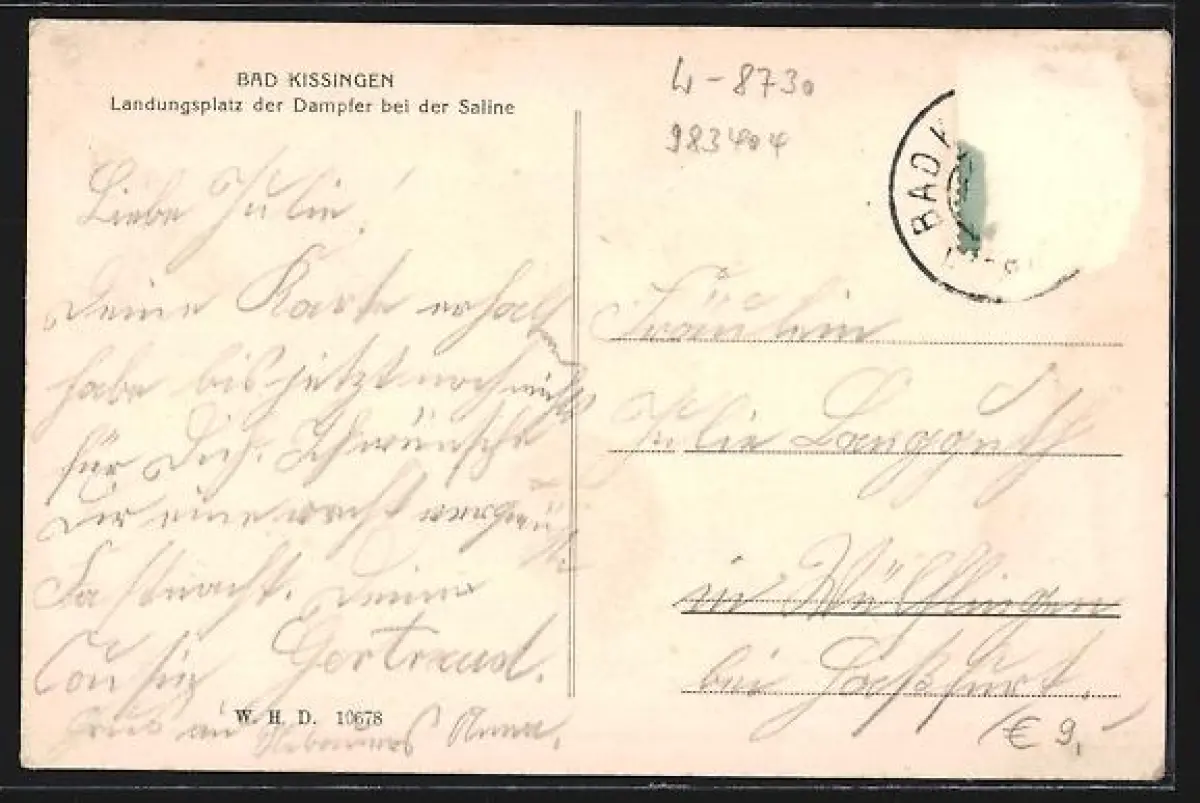 BAD KISSINGEN
Landungsplatz der Dampfer bei der Saline
Liebe Julie!
Deine Karte erhalten
habe bis jetzt noch nichts
für Dich. Ich wünsche
Dir eine recht vergnügte
Fastnacht. Deine
Cousine Gertraud.
Gruß an Anna.
W. H. D. 10678
4-8730
983404
BAD K
Fräulein
Julie Langguth
in Wülflingen
bei Haßfurt.
€ 9,